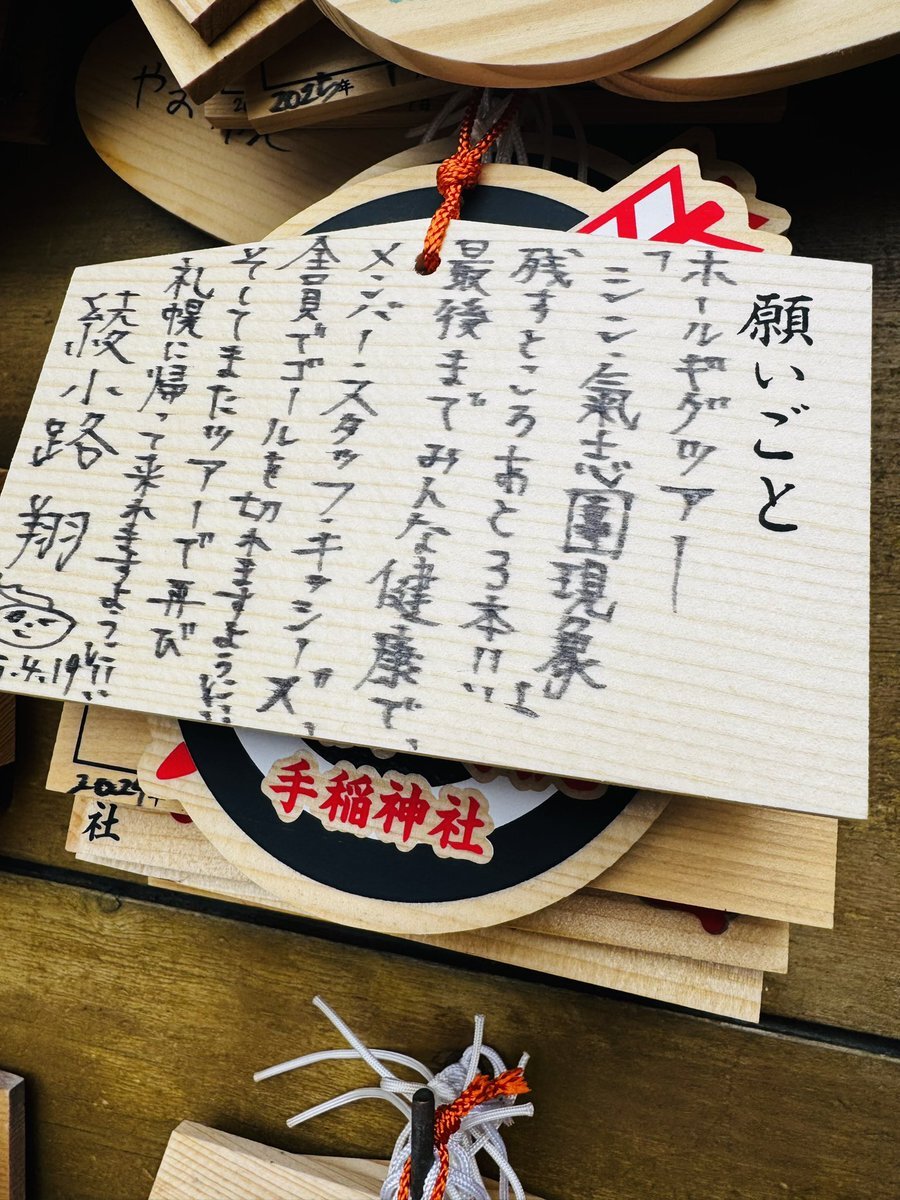 願いごと
ホールギグツアー
「シン・氣志團現象」
残すところあと3本!!
最後までみんな健康で、
メンバー・スタッフ・キッシーズ、
全員でゴールを切れますように!!
そしてまたツアーで再び
札幌に帰って来れますように!!
綾小路 翔
.4.19
手稲神社
2025年
2024
社